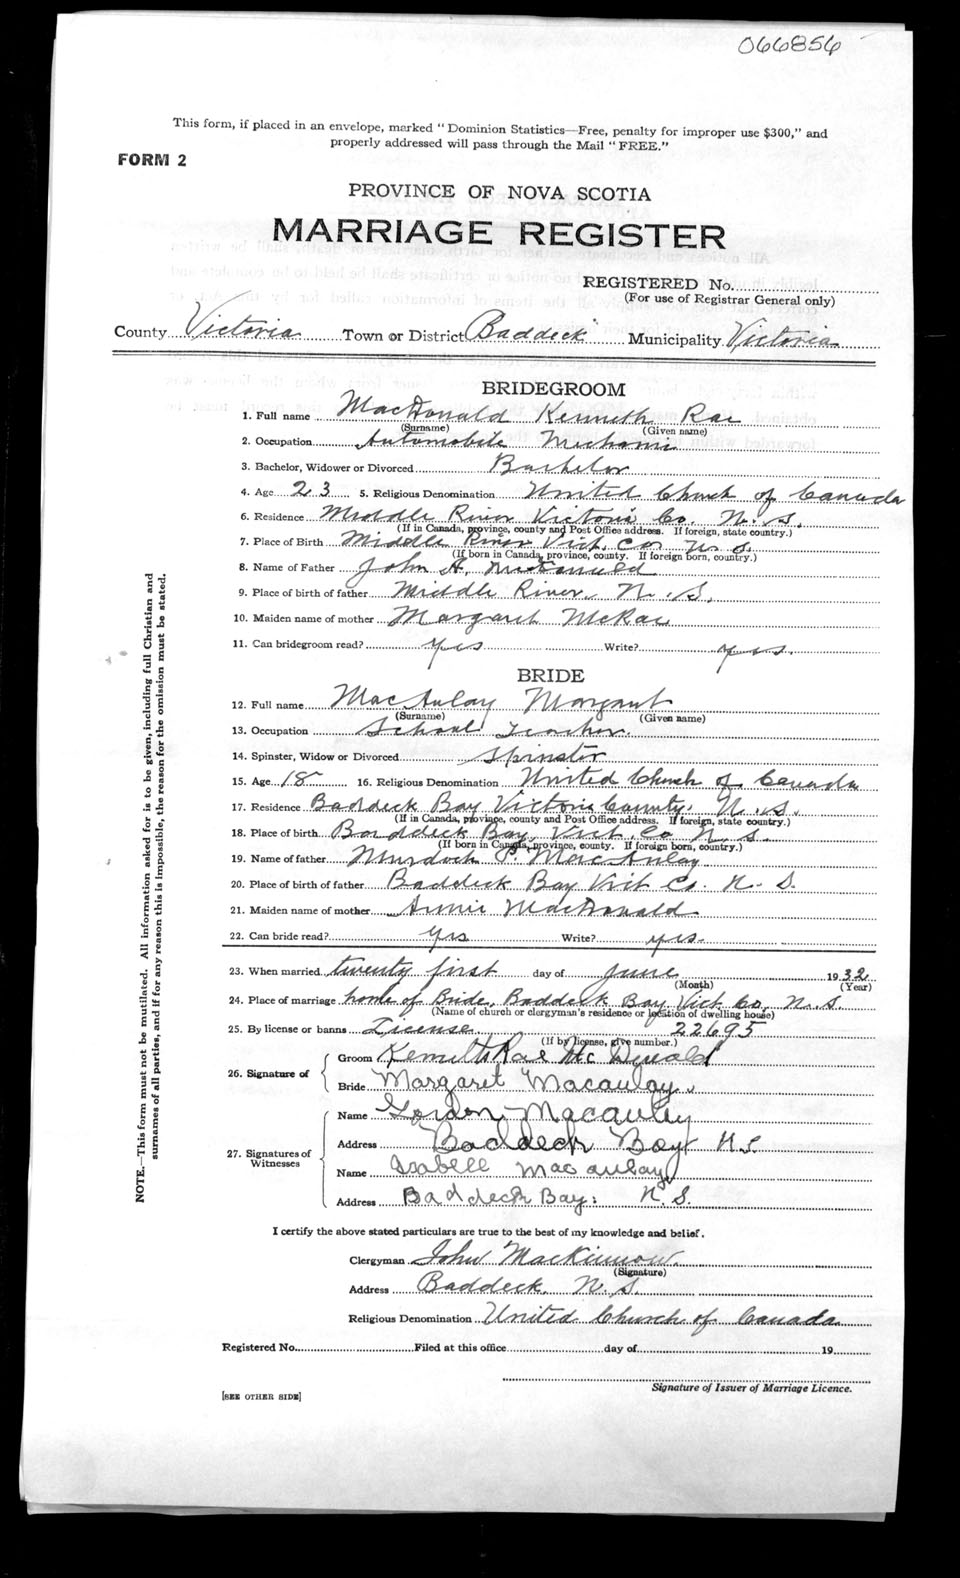 066856
This form, if placed in an envelope, marked "Dominion Statistics—Free, penalty for improper use $300," and
properly addressed will pass through the Mail "FREE."
FORM 2
PROVINCE OF NOVA SCOTIA
MARRIAGE REGISTER
REGISTERED No.
(For use of Registrar General only)
County Victoria Town or District Baddeck Municipality Victoria
BRIDEGROOM
1. Full name MacDonald Kenneth Rae
(Surname) (Given name)
2. Occupation Automobile Mechanic
3. Bachelor, Widower or Divorced Bachelor
4. Age 23 5. Religious Denomination United Church of Canada
6. Residence Middle River Victoria Co. N. S.
(If in Canada, province, county and Post Office address. If foreign, state country.)
7. Place of Birth Middle River Vict. Co. N. S.
(If born in Canada, province, county. If foreign born, country.)
8. Name of Father John A. McDonald
9. Place of birth of father Middle River, N. S.
10. Maiden name of mother Margaret McRae
11. Can bridegroom read? yes Write? yes.
BRIDE
12. Full name MacAulay Margaret
(Surname) (Given name)
13. Occupation School Teacher.
14. Spinster, Widow or Divorced Spinster
15. Age 18 16. Religious Denomination United Church of Canada
17. Residence Baddeck Bay Victoria County. N. S.
(If in Canada, province, county and Post Office address. If foreign, state country.)
18. Place of birth Baddeck Bay, Vict. Co N. S.
(If born in Canada, province, county. If foreign born, country.)
19. Name of father Murdoch P. MacAulay
20. Place of birth of father Baddeck Bay Vict Co. N. S.
21. Maiden name of mother Annie MacDonald
22. Can bride read? yes Write? yes.
23. When married twenty first day of June 1932
(Month) (Year)
24. Place of marriage home of Bride, Baddeck Bay Vict Co. N. S.
(Name of church or clergyman's residence or location of dwelling house)
25. By license or banns License 22695
(If by license, give number.)
26. Signature of Groom Kenneth Rae McDonald
Bride Margaret Macaulay.
27. Signatures of Witnesses
Name Gordon Macauley
Address Baddeck Bay N.S.
Name Isabell Macaulay
Address Baddeck Bay. N. S.
I certify the above stated particulars are true to the best of my knowledge and belief.
Clergyman John MacKinnon.
(Signature)
Address Baddeck, N. S.
Religious Denomination United Church of Canada
Registered No. Filed at this office day of 19
Signature of Issuer of Marriage Licence.
[SEE OTHER SIDE]
NOTE.—This form must not be mutilated. All information asked for is to be given, including full Christian and
surnames of all parties, and if for any reason this is impossible, the reason for the omission must be stated.